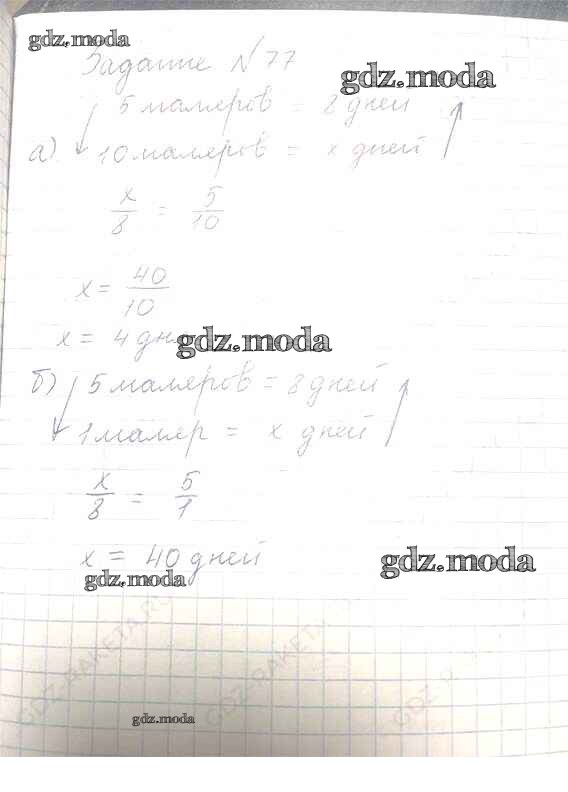 gdz.moda
Задание №77
gdz.moda
5 маляров = 8 дней
а) 10 маляров = x дней
x/8 = 5/10
x = 40/10
x = 4 дне
gdz.moda
б) 5 маляров = 8 дней
1 маляр = x дней
x/8 = 5/1
x = 40 дней
gdz.moda
gdz.moda
GDZ-RAKETA.RU
GDZ-RAKETA
GDZ-R
gdz.moda